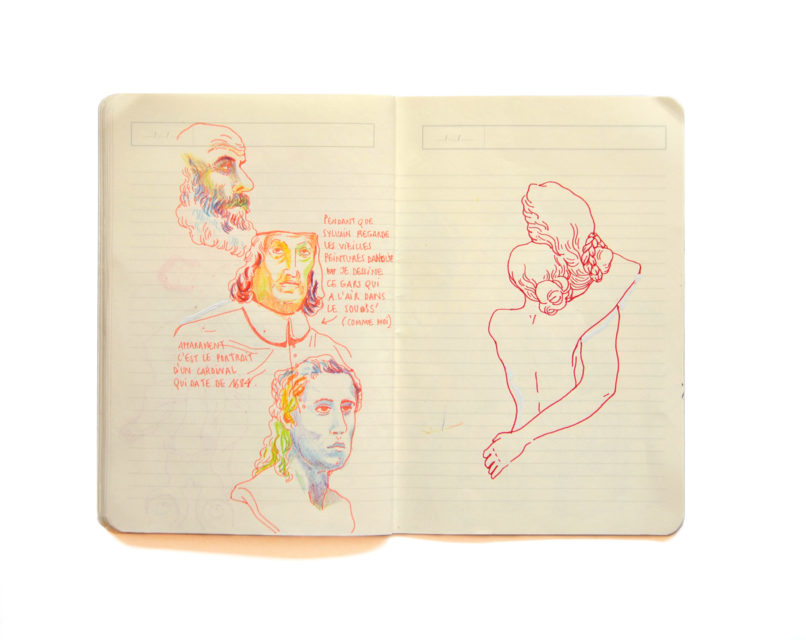 PENDANT QUE
SYLVAIN REGARDE
LES VIEILLES
PEINTURES
JE DESSINE
CE GARS QUI
A L'AIR DANS
LE
(COMME MOI)
APPARAMENT
C'EST LE PORTRAIT
D'UN CARDINAL
QUI DATE DE 1684.